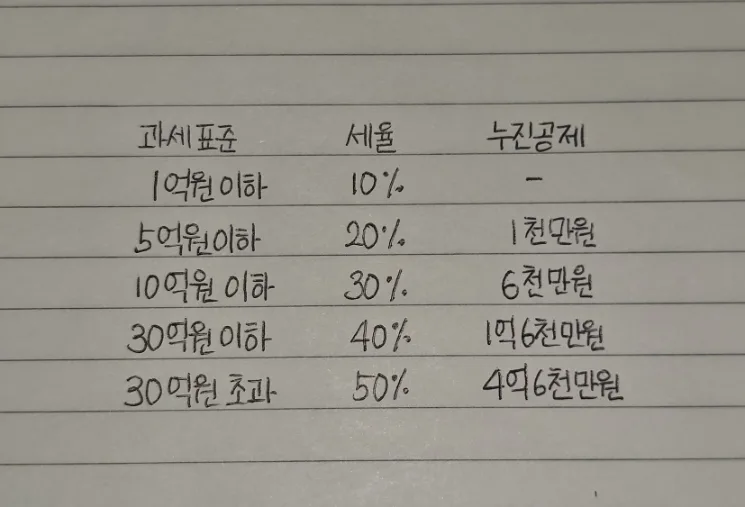 과세표준 세율 누진공제
1억원 이하 10% -
5억원 이하 20% 1천만원
10억원 이하 30% 6천만원
30억원 이하 40% 1억 6천만원
30억원 초과 50% 4억 6천만원